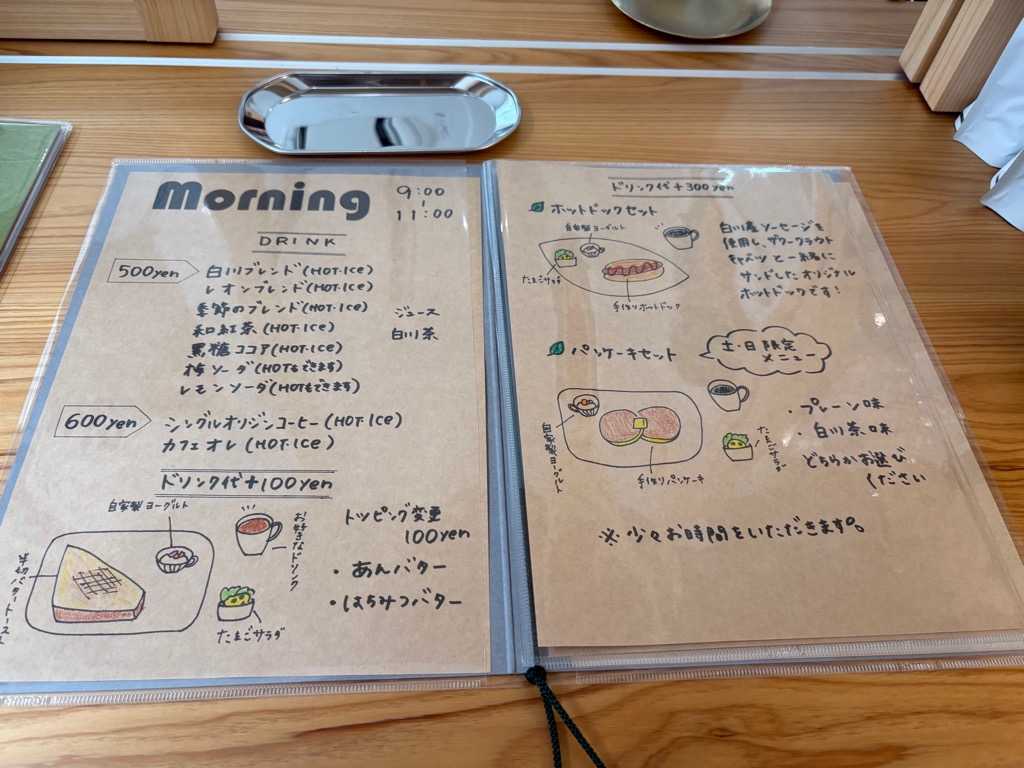 Morning
9:00
|
11:00
DRINK
500yen
白川ブレンド(HOT・Ice)
レオンブレンド(HOT・Ice)
季節のブレンド(HOT・Ice)
和紅茶(HOT・Ice)
黒糖ココア(HOT・Ice)
梅ソーダ(HOTもできます)
レモンソーダ(HOTもできます)
ジュース
白川茶
600yen
シングルオリジンコーヒー(HOT・Ice)
カフェオレ(HOT・Ice)
ドリンク代+100yen
自家製ヨーグルト
半切バタートースト
お好きなドリンク
たまごサラダ
トッピング変更
100yen
・あんバター
・はちみつバター
ドリンク代+300yen
ホットドックセット
自家製ヨーグルト
たまごサラダ
手作りホットドック
白川産ソーセージを
使用し、ザワークラウト
キャベツと一緒に
サンドしたオリジナル
ホットドックです!
パンケーキセット
土・日限定
メニュー
自家製ヨーグルト
手作りパンケーキ
たまごサラダ
・プレーン味
・白川茶味
どちらかお選び
ください
※少々お時間をいただきます。